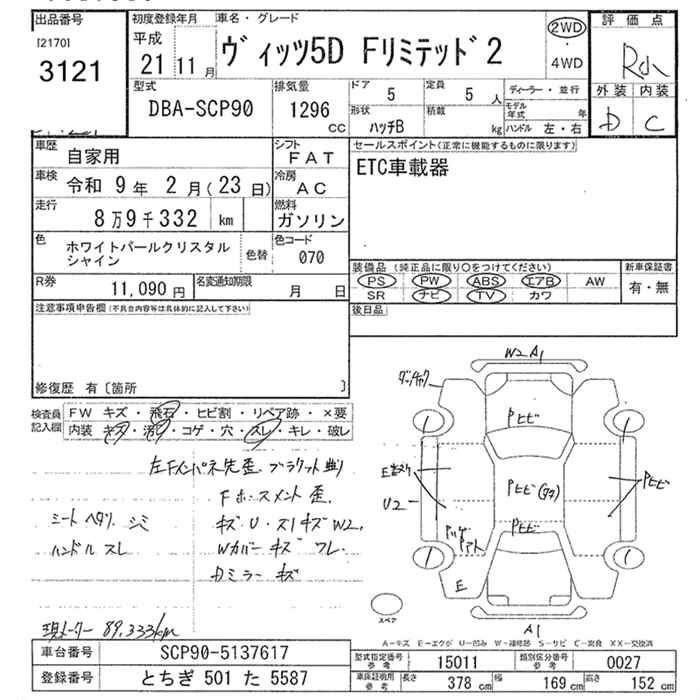 出品番号
[2170]
3121
初度登録年月
平成
21 11 月
車名・グレード
ヴィッツ5D Fリミテッド2
2WD
・
4WD
評価点
外装 内装
D C
型式
DBA-SCP90
排気量
1296
CC
ドア
5
定員
5 人
形状
ハッチB
積載
kg
ディーラー・並行
モデル年式 年
ハンドル 左・右
車歴
自家用
シフト
FAT
車検
令和 9年 2月(23日)
冷房
AC
走行
8万9千332 km
燃料
ガソリン
色
ホワイトパールクリスタル
シャイン
色替
色コード
070
R券
11,090 円
名変通知期限
月 日
セールスポイント(正常に機能するものに限ります)
ETC車載器
装備品(純正品に限り○をつけてください)
PS PW ABS エアB AW
SR ナビ TV カワ
新車保証書
有・無
後日品
注意事項申告欄(不具合内容等は具体的に記入して下さい)
修復歴 有〔箇所 〕
検査員
記入欄
FW キズ・飛石・ヒビ割・リペア跡・×要
内装 キズ・汚れ・コゲ・穴・スレ・キレ・破レ
シートヘタリ シミ
ハンドルスレ
Fホースメント歪
キズU・スリキズW2
Wカバーキズ ワレ
Dミラーキズ
現メーター 89,333km
W2 A1
Pヒビ
Pヒビ
Pヒビ
Pヒビ
U2
E
A1
スペア
A-キズ E-エクボ U-凹み W-補修跡 S-サビ C-腐食 XX-交換済
車台番号
SCP90-5137617
登録番号
とちぎ 501 た 5587
型式指定番号
参考
15011
類別区分番号
参考
0027
車庫証明用
参考
長さ 378 cm
幅 169 cm
高さ 152 cm